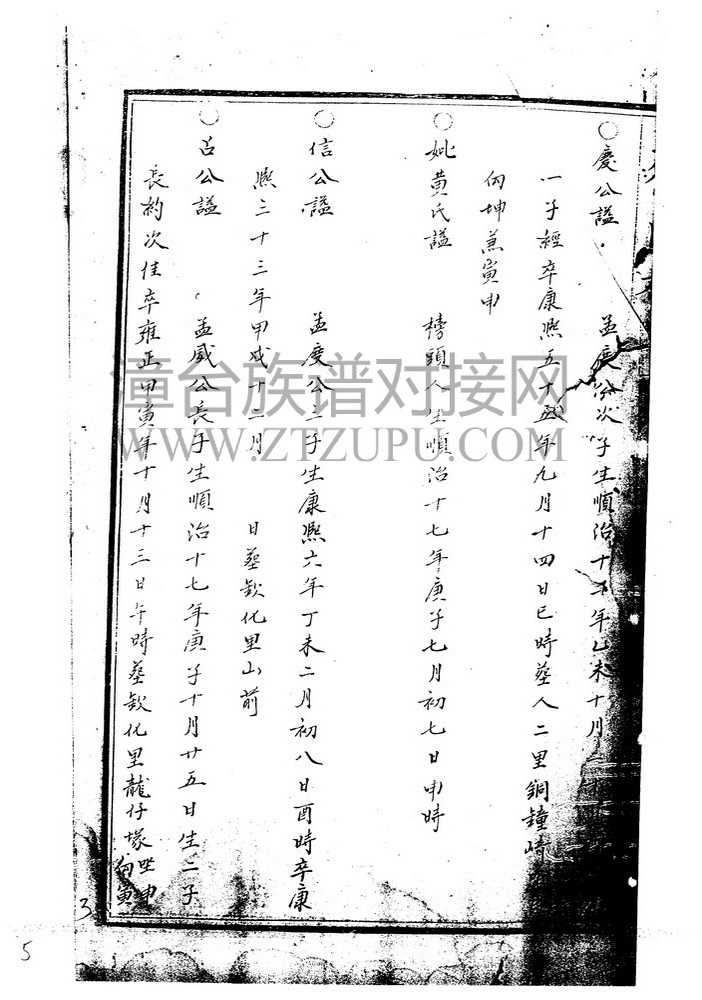 慶公諡 孟度公次子生順治十二年乙未十月
一子經卒康熙五十五年九月十四日巳時塟人二里銅鐘崎
向坤兼寅申
妣黃氏諡 榜頭人生順治十七年庚子七月初七日申時
信公諡 孟度公三子生康熙六年丁未二月初八日酉時卒康
熙三十三年甲戌十二月 日塟欽化里山前
召公諡 孟威公長子生順治十七年庚子十月廿五日生二子
長約次佳卒雍正甲寅年十月十三日午時塟欽化里龍仔塚坐申
向寅
漳台族谱对接网
WWW.ZTZUPU.COM
3
5